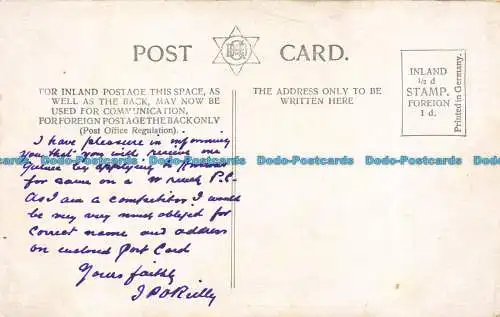 POST CARD.
FOR INLAND POSTAGE THIS SPACE, AS
WELL AS THE BACK, MAY NOW BE
USED FOR COMMUNICATION,
FOR FOREIGN POSTAGE THE BACK ONLY
(Post Office Regulation).
I have pleasure in informing
you that you will receive one
Guinea by applying to
for same on a P.C.
As I am a competitor I would
be very very much obliged for
correct name and address
on enclosed Post Card
Yours faithly
J P O'Reilly
THE ADDRESS ONLY TO BE
WRITTEN HERE
INLAND
½ d
STAMP.
FOREIGN
1 d.
Printed in Germany.
Bodo-Postcards Bodo-Postcards Bodo-Postcards Bodo-Postcards